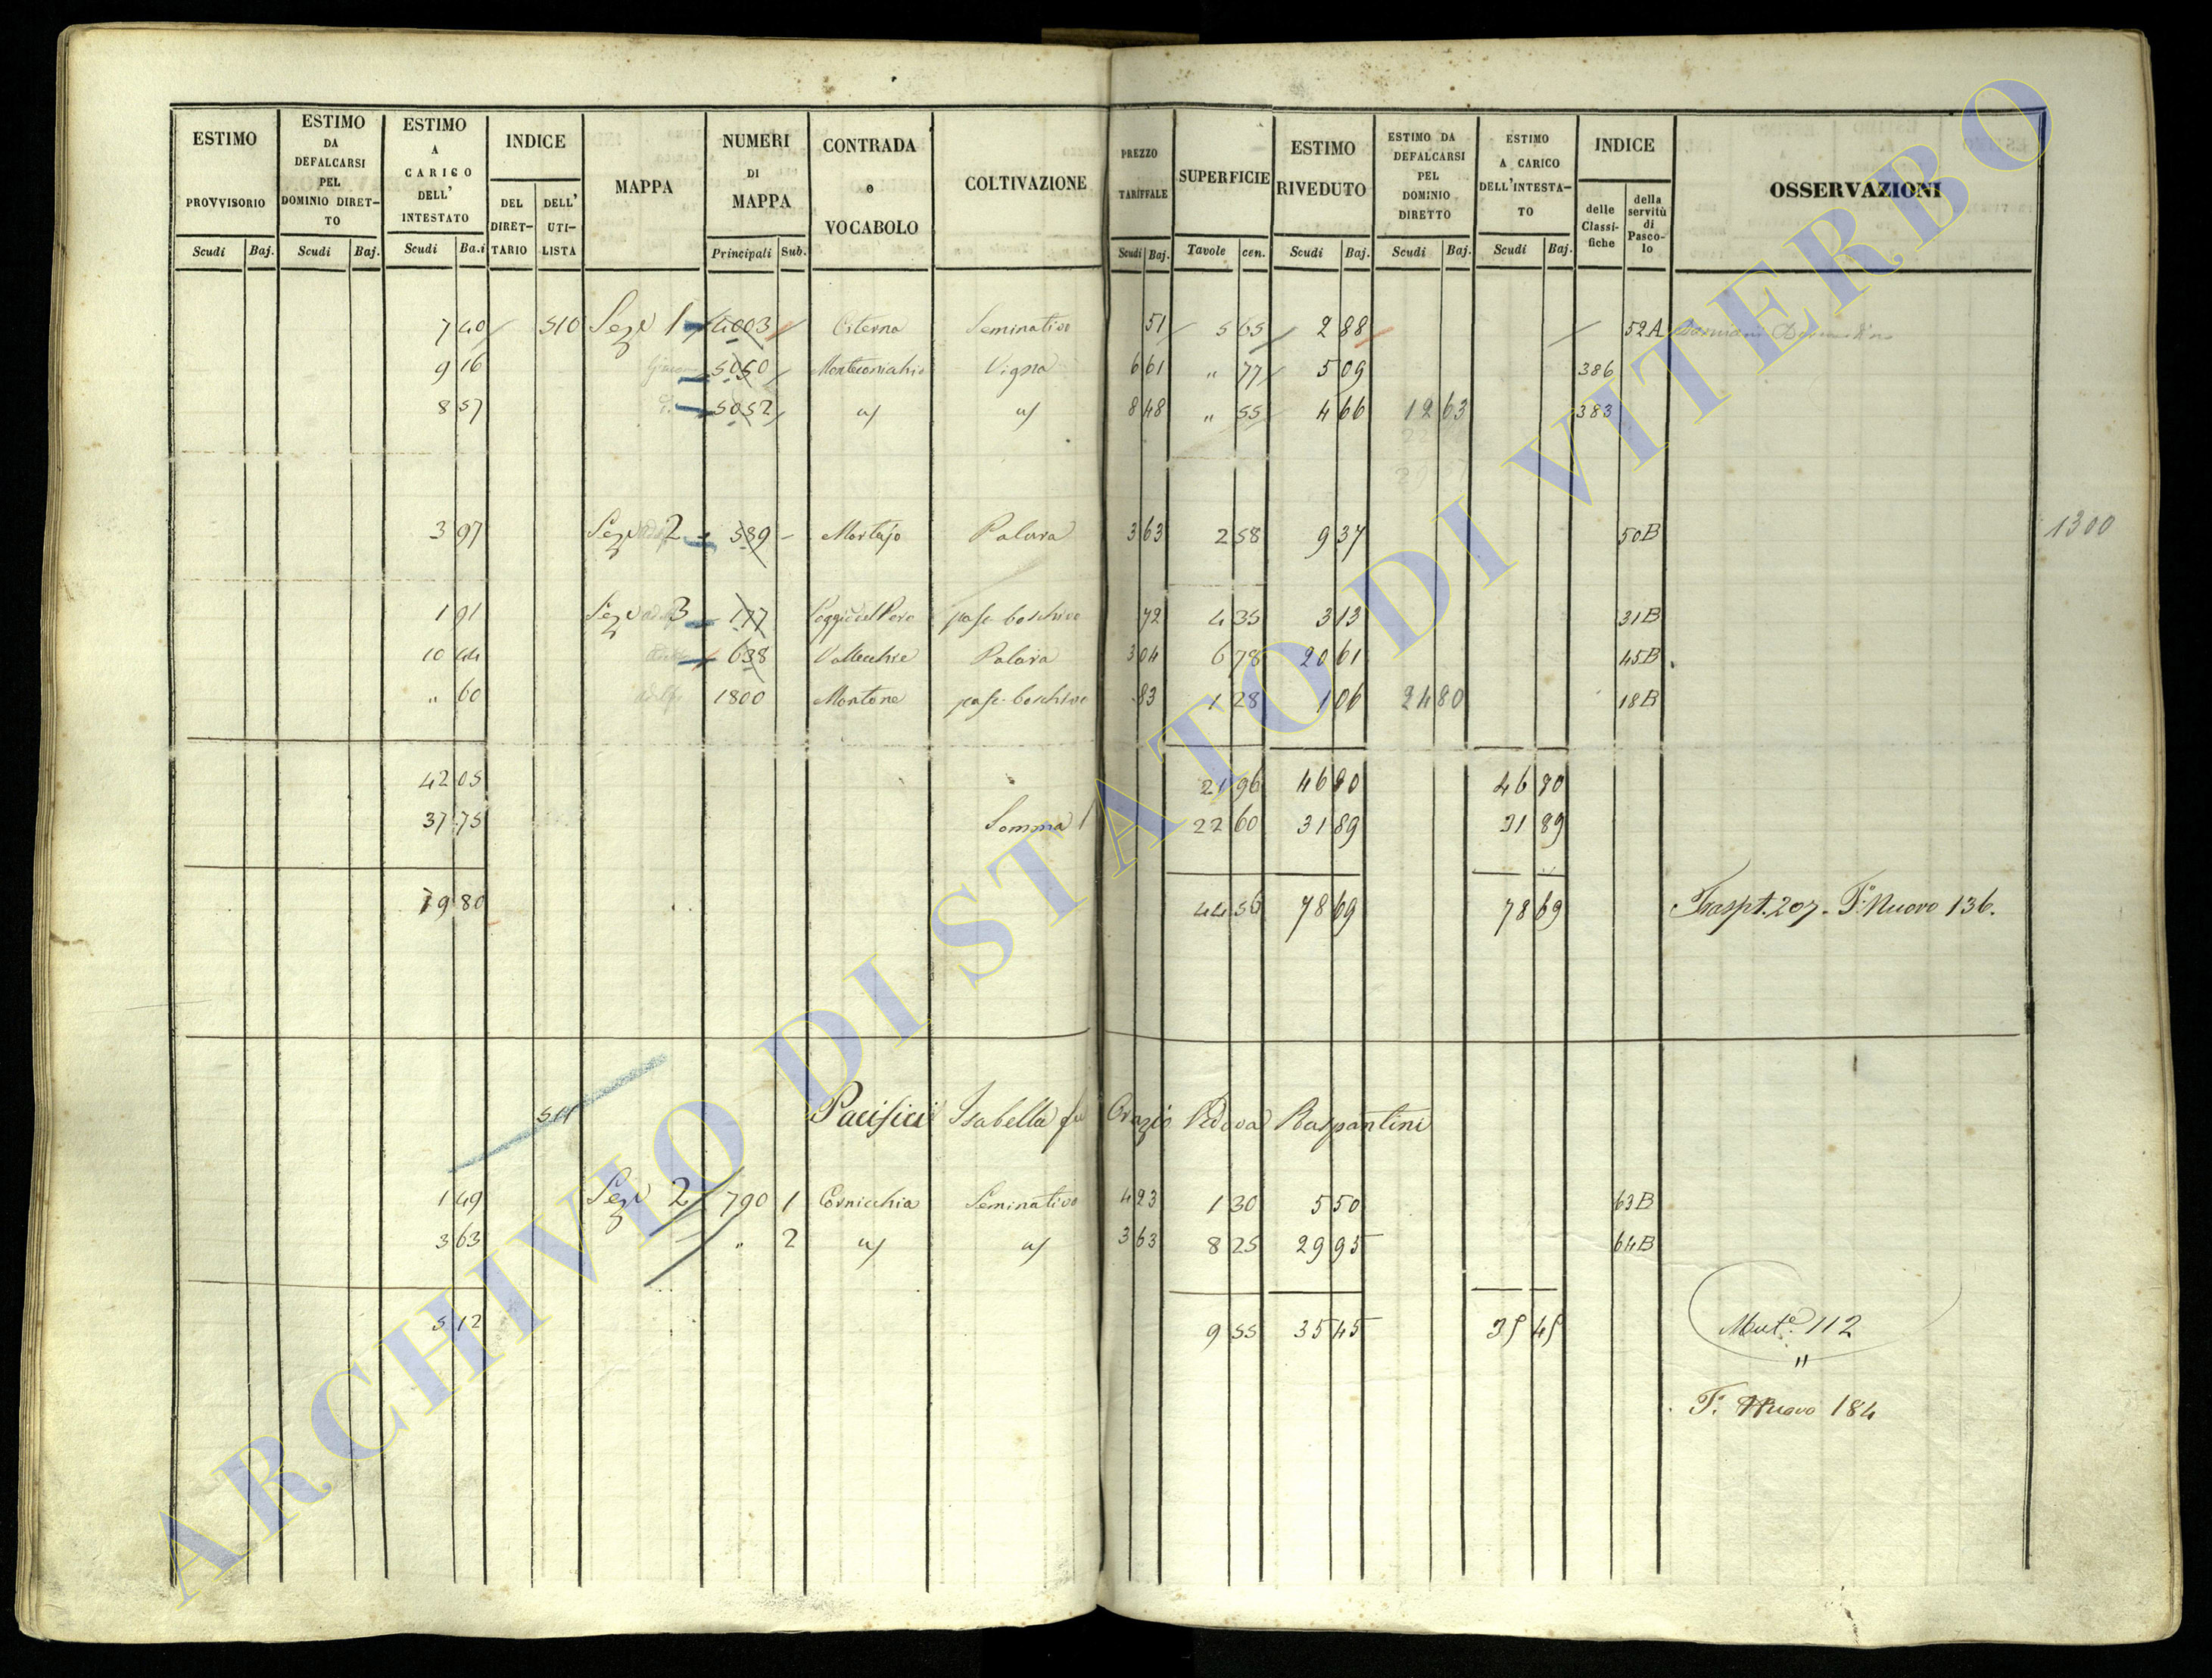 ESTIMO PROVVISORIO | ESTIMO DA DEFALCARSI PEL DOMINIO DIRETTO | ESTIMO A CARICO DELL' INTESTATO | INDICE | MAPPA | NUMERI DI MAPPA | CONTRADA o VOCABOLO | COLTIVAZIONE | PREZZO TARIFFALE | SUPERFICIE | ESTIMO RIVEDUTO | ESTIMO DA DEFALCARSI PEL DOMINIO DIRETTO | ESTIMO A CARICO DELL'INTESTATO | INDICE | OSSERVAZIONI
Scudi | Baj. | Scudi | Baj. | Scudi | Ba.i | DEL DIRETTARIO | DELL' UTILISTA | Principali | Sub. | Scudi | Baj. | Tavole | cen. | Scudi | Baj. | Scudi | Baj. | Scudi | Baj. | delle Classifiche | della servitù di Pascolo
7 40 510 Sez 1 4003 Citerna Seminativo 51 5 65 2 88 52A
9 16 5050 Vigna 6 61 " 77 5 09 386
8 57 5052 8 48 " 55 4 66 12 63 383
3 97 Sez 2 589 Mortajo 3 63 2 58 9 37 50B
1300
1 91 Sez 3 177 72 4 35 3 13 31B
10 44 638 Vallecchie 3 04 6 78 20 61 45B
" 60 1800 Montone 83 1 28 1 06 24 80 18B
42 05 21 96 46 80 46 80
37 75 Somma 22 60 31 89 31 89
79 80 44 56 78 69 78 69 Traspt. 207. F. Nuovo 136.
511 Pacifici Isabella fu Orazio Vedova Raspantini
1 49 Sez 2 790 1 Cornicchia Seminativo 4 23 1 30 5 50 63B
3 63 " 2 3 63 8 25 29 95 64B
5 12 9 55 35 45 35 45 Mut.e 112
"
F. Nuovo 184
ARCHIVIO DI STATO DI VITERBO